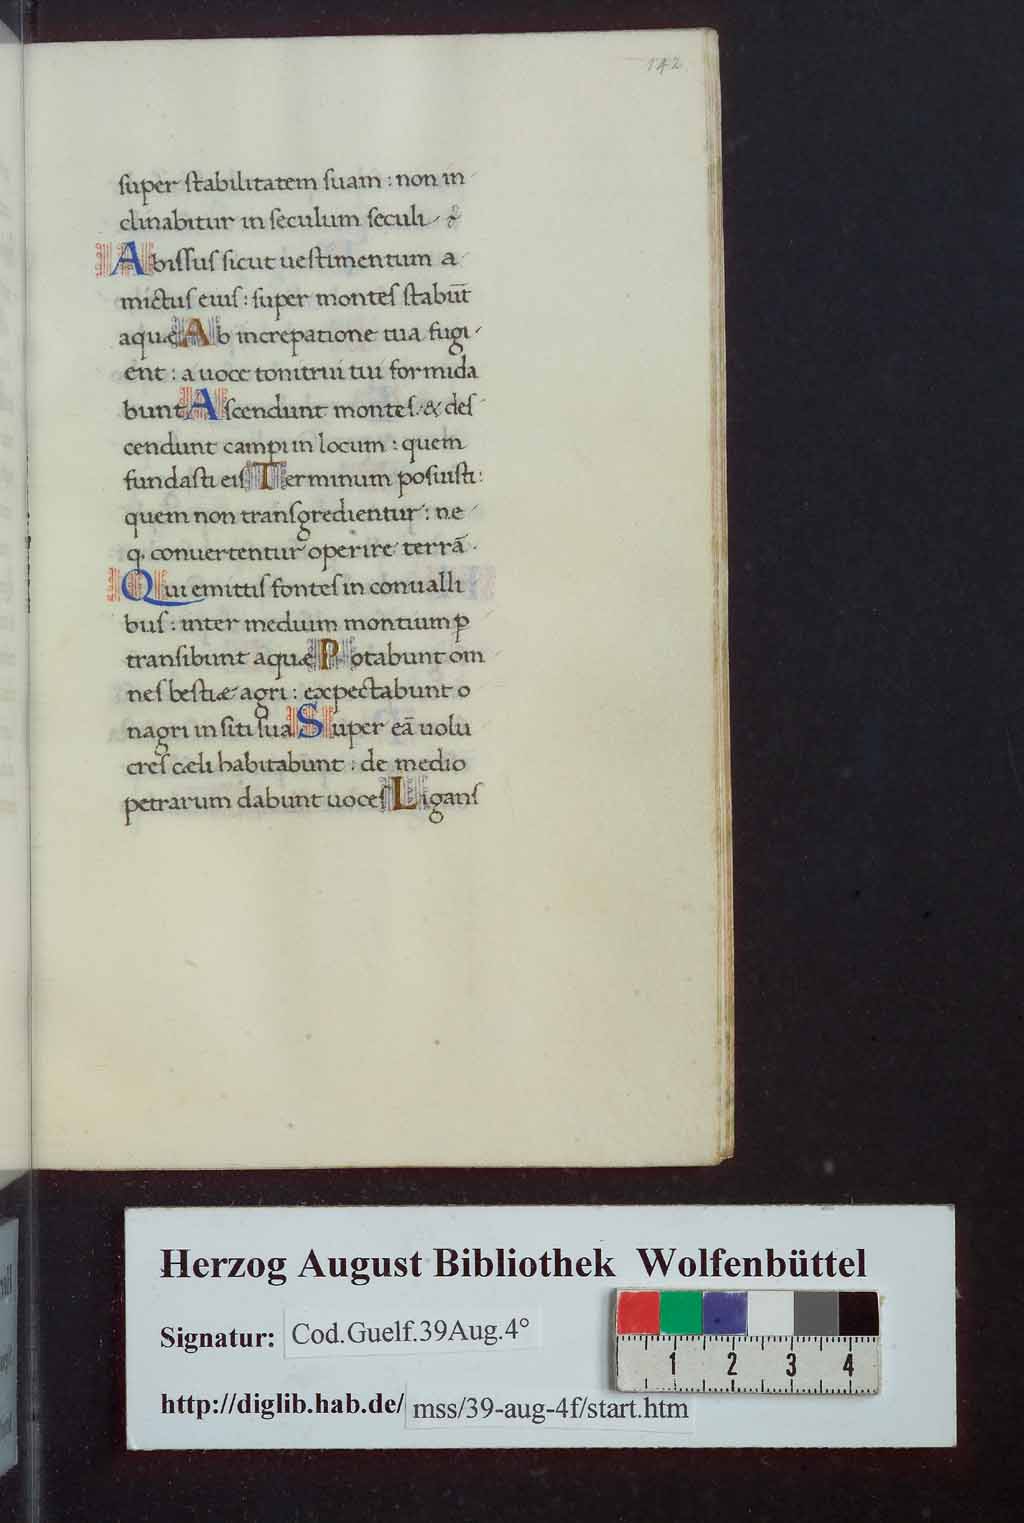 142
super stabilitatem suam : non in
clinabitur in seculum seculi
Abissus sicut uestimentum a
mictus eius : super montes stabūt
aquæ Ab increpatione tua fugi
ent : a uoce tonitrui tui formida
bunt Ascendunt montes & des
cendunt campi in locum : quem
fundasti eis Terminum posuisti :
quem non transgredientur : ne
q. conuertentur operire terrā .
Qui emittis fontes in conualli
bus : inter medium montium p̱
transibunt aquæ Potabunt om
nes bestiæ agri : expectabunt o
nagri in siti sua Super eā uolu
cres cæli habitabunt : de medio
petrarum dabunt uoces Ligans
Herzog August Bibliothek Wolfenbüttel
Signatur: Cod.Guelf.39Aug.4°
http://diglib.hab.de/ mss/39-aug-4f/start.htm
1 2 3 4